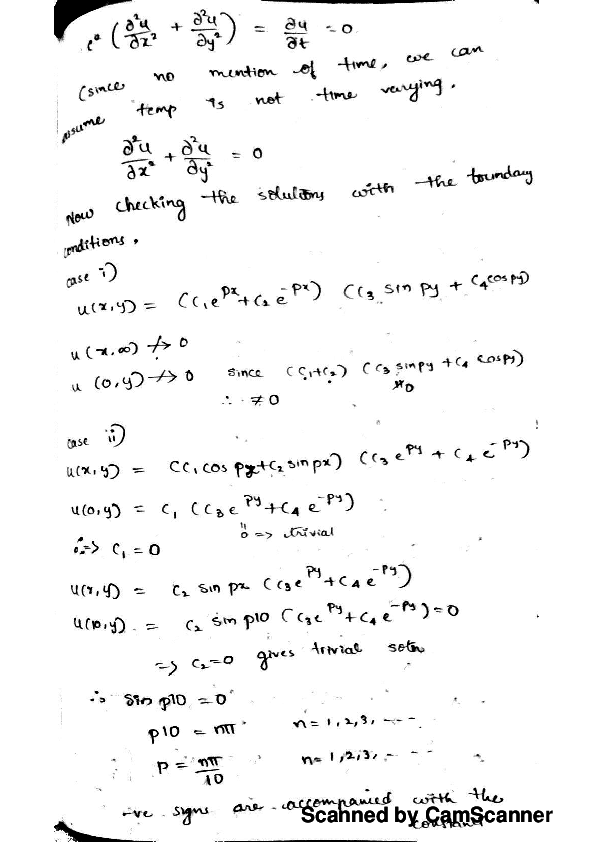 c² ( ∂²u/∂x² + ∂²u/∂y² ) = ∂u/∂t = 0
(since no mention of time, we can
assume temp is not time varying.
∂²u/∂x² + ∂²u/∂y² = 0
Now checking the solutions with the boundary
conditions,
case i)
u(x,y) = (c₁e^px + c₂e^-px) (c₃ sin py + c₄ cos py)
u(x,∞) ↛ 0
u(0,y) ↛ 0 since (c₁+c₂) (c₃ sin py + c₄ cos py)
∴ ≠ 0 ≠0
case ii)
u(x,y) = (c₁ cos px + c₂ sin px) (c₃ e^py + c₄ e^-py)
u(0,y) = c₁ (c₃ e^py + c₄ e^-py)
∴ => c₁ = 0 0 => trivial
u(x,y) = c₂ sin px (c₃e^py + c₄ e^-py)
u(10,y) = c₂ sin p10 (c₃e^py + c₄ e^-py) = 0
=> c₂=0 gives trivial soln
∴ sin p10 = 0
p10 = nπ n = 1,2,3, ----
p = nπ/10 n = 1,2,3, ----
-ve signs are accompanied with the
constant
Scanned by CamScanner